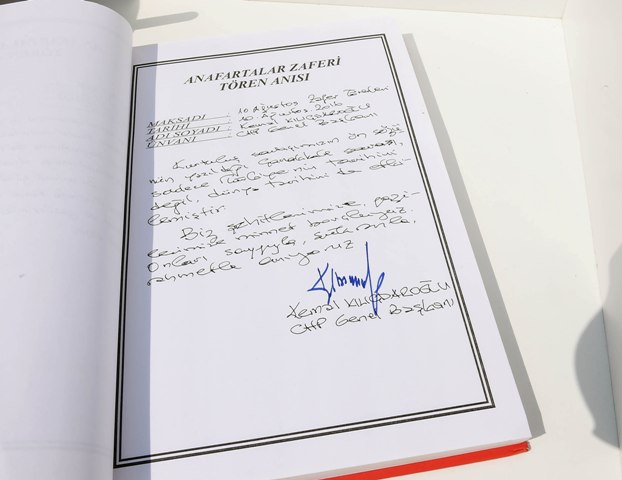 ANAFARTALAR ZAFERİ
TÖREN ANISI
MAKSADI : 10 Ağustos Zafer Törenleri
TARİHİ : 10 Ağustos 2016
ADI SOYADI : Kemal KILIÇDAROĞLU
ÜNVANI : CHP Genel Başkanı
Kurtuluş savaşımızın ön sözü
nün yazıldığı Çanakkale savaşı,
sadece Türkiye'nin tarihini
değil, dünya tarihini de etki
lemiştir.
Biz şehitlerimize, gazi
lerimize minnet borçluyuz.
Onları saygıyla, şükranla,
rahmetle anıyoruz
Kemal KILIÇDAROĞLU
CHP Genel Başkanı